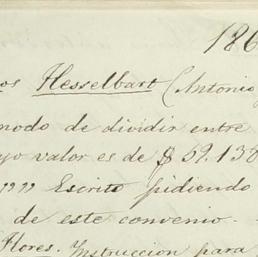 186
os Hesselbart (Antonio
modo de dividir entre
yo valor es de $ 59.138
"" "" Escrito pidiendo
de este convenio. -
Flores. Instruccion para